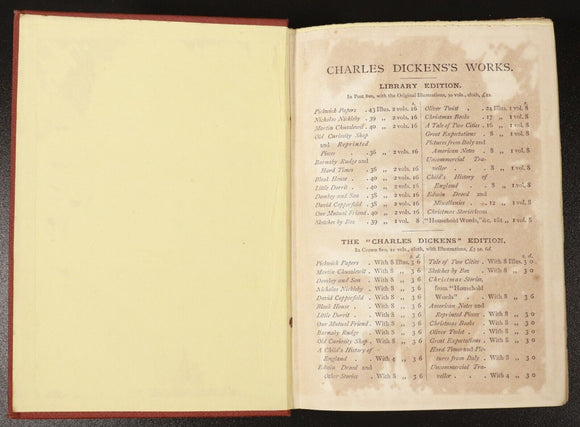 CHARLES DICKENS'S WORKS.
LIBRARY EDITION.
In Post 8vo, with the Original Illustrations, 30 vols., cloth, £12.
s.
Pickwick Papers . 43 Illus. 2 vols. 16
Nicholas Nickleby . 39 „ 2 vols. 16
Martin Chuzzlewit . 40 „ 2 vols. 16
Old Curiosity Shop
and Reprinted
Pieces . . 36 „ 2 vols. 16
Barnaby Rudge and
Hard Times . 36 „ 2 vols. 16
Bleak House . . 40 „ 2 vols. 16
Little Dorrit . . 40 „ 2 vols. 16
Dombey and Son . 38 „ 2 vols. 16
David Copperfield . 38 „ 2 vols. 16
Our Mutual Friend . 40 „ 2 vols. 16
Sketches by Boz . 39 „ 1 vol. 8
s.
Oliver Twist . . 24 Illus. 1 vol. 8
Christmas Books . 17 „ 1 vol. 8
A Tale of Two Cities . 16 „ 1 vol. 8
Great Expectations . 8 „ 1 vol. 8
Pictures from Italy and
American Notes . 8 „ 1 vol. 8
Uncommercial Tra-
veller . . . 8 „ 1 vol. 8
Child's History of
England . . 8 „ 1 vol. 8
Edwin Drood and
Miscellanies . . 12 „ 1 vol. 8
Christmas Stories from
"Household Words," &c. 16 „ 1 vol. 8
THE "CHARLES DICKENS" EDITION.
In Crown 8vo, 21 vols., cloth, with Illustrations, £3 9s. 6d.
s. d.
Pickwick Papers . With 8 Illus. 3 6
Martin Chuzzlewit . With 8 „ 3 6
Dombey and Son . With 8 „ 3 6
Nicholas Nickleby . With 8 „ 3 6
David Copperfield . With 8 „ 3 6
Bleak House . . With 8 „ 3 6
Little Dorrit . . With 8 „ 3 6
Our Mutual Friend . With 8 „ 3 6
Barnaby Rudge . With 8 „ 3 6
Old Curiosity Shop . With 8 „ 3 6
A Child's History of
England . . With 4 „ 3 6
Edwin Drood and
Other Stories . With 8 „ 3 6
s. d.
Tale of Two Cities . With 8 Illus. 3 0
Sketches by Boz . With 8 „ 3 0
Christmas Stories,
from "Household
Words" . . With 8 „ 3 6
American Notes and
Reprinted Pieces . With 8 „ 3 6
Christmas Books . With 8 „ 3 6
Oliver Twist . . With 8 „ 3 6
Great Expectations . With 8 „ 3 6
Hard Times and Pic-
tures from Italy . With 8 „ 3 0
Uncommercial Tra-
veller . . . With 4 „ 3 0